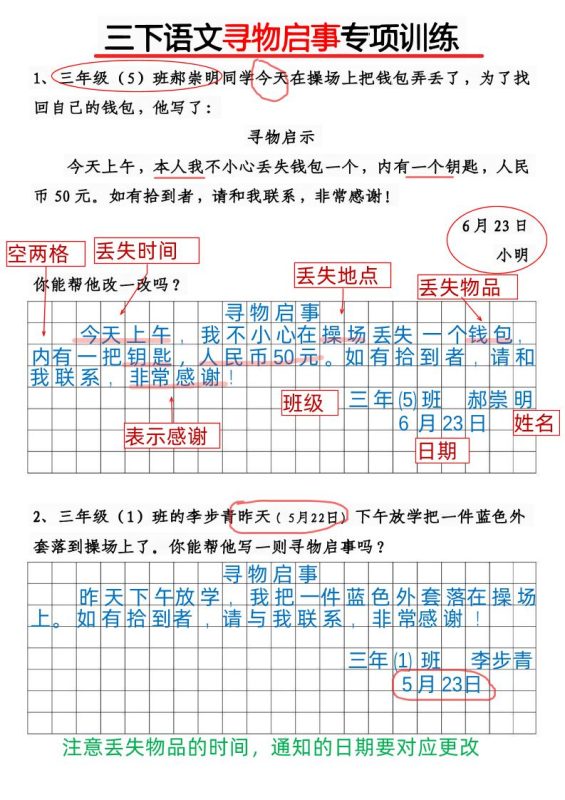 三下语文寻物启事专项训练
1、三年级（5）班郝崇明同学今天在操场上把钱包弄丢了，为了找
回自己的钱包，他写了：
寻物启示
今天上午，本人我不小心丢失钱包一个，内有一个钥匙，人民
币 50 元。如有拾到者，请和我联系，非常感谢！
6 月 23 日
小明
空两格
丢失时间
丢失地点
丢失物品
你能帮他改一改吗？
寻物启事
今天上午，我不小心在操场丢失一个钱包，
内有一把钥匙，人民币50元。如有拾到者，请和
我联系，非常感谢！
班级
三年(5)班 郝崇明
6月23日
姓名
表示感谢
日期
2、三年级（1）班的李步青昨天（5月22日）下午放学把一件蓝色外
套落到操场上了。你能帮他写一则寻物启事吗？
寻物启事
昨天下午放学，我把一件蓝色外套落在操场
上。如有拾到者，请与我联系，非常感谢！
三年(1)班 李步青
5月23日
注意丢失物品的时间，通知的日期要对应更改